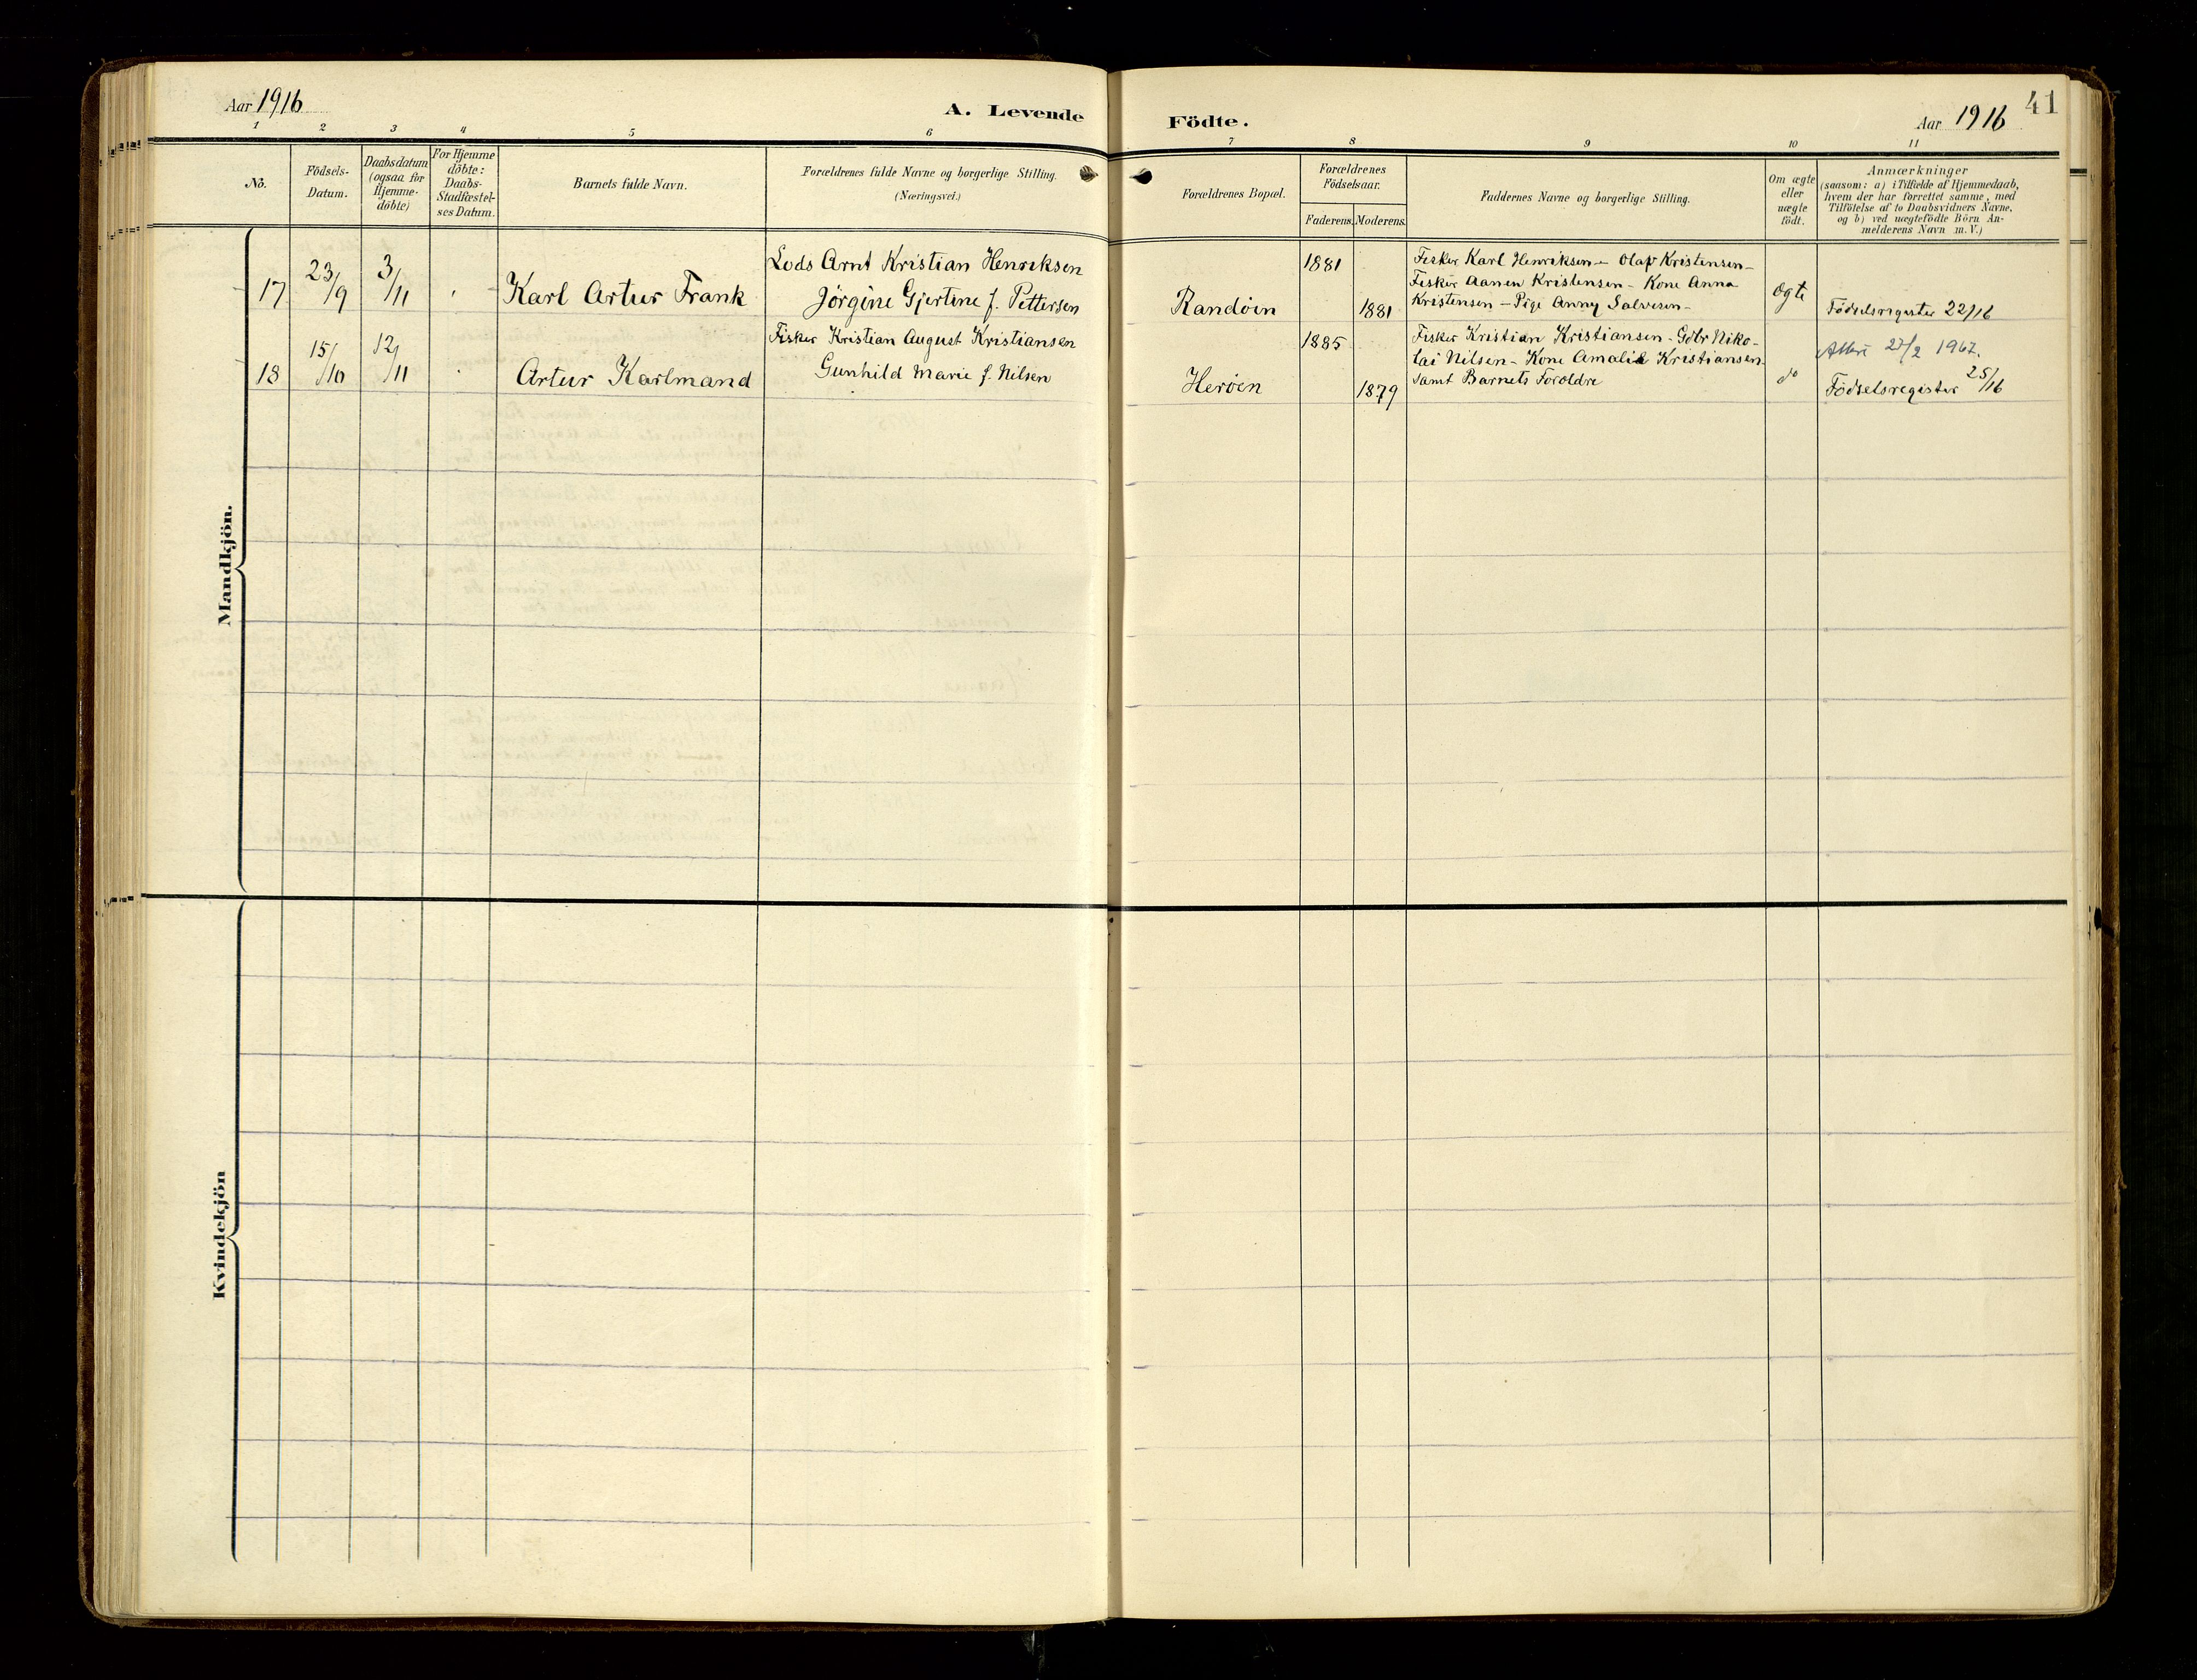 Aar 1916
A. Levende
Födte.
Aar 1916
41
1 2 3 4 5 6 7 8 9 10 11
No.
Födsels-
Datum.
Daabsdatum
(ogsaa for
Hjemme-
döbte)
For Hjemme
döbte:
Daabs-
Stadfæstel-
ses Datum.
Barnets fulde Navn.
Forældrenes fulde Navne og borgerlige Stilling.
(Næringsvei.)
Forældrenes Bopæl.
Forældrenes
Födselsaar.
Faderens. Moderens.
Faddernes Navne og borgerlige Stilling.
Om ægte
eller
uægte
födt.
Anmærkninger
(saasom: a) i Tilfælde af Hjemmedaab,
hvem der har forrettet samme, med
Tilföielse af to Daabsvidners Navne,
og b) ved uægtefödte Börn An-
melderens Navn m. V.)
Mandkjön.
17 23/9 3/11 Karl Artur Frank
Lods Arnt Kristian Henriksen
Jörgine Gjertine f. Pettersen
Randöen
1881
1881
Fisker Karl Henriksen - Olaf Kristensen -
Fisker Aanen Kristensen - Kone Anna
Kristensen - Pige Anny Salvesen -
Ægte
Födselsregister 22/16
18 15/10 12/11 Artur Karlmand
Fisker Kristian August Kristiansen
Gunhild Marie f. Nilsen
Heröen
1885
1879
Fisker Kristian Kristiansen - Gdbr Niko-
lai Nilsen - Kone Amalie Kristiansen
samt Barnets Foroldre
do
27/2 1967.
Födselsregister 25/16
Kvindekjön